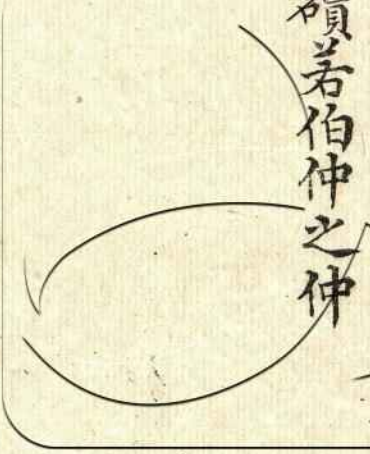 碩若伯仲之仲